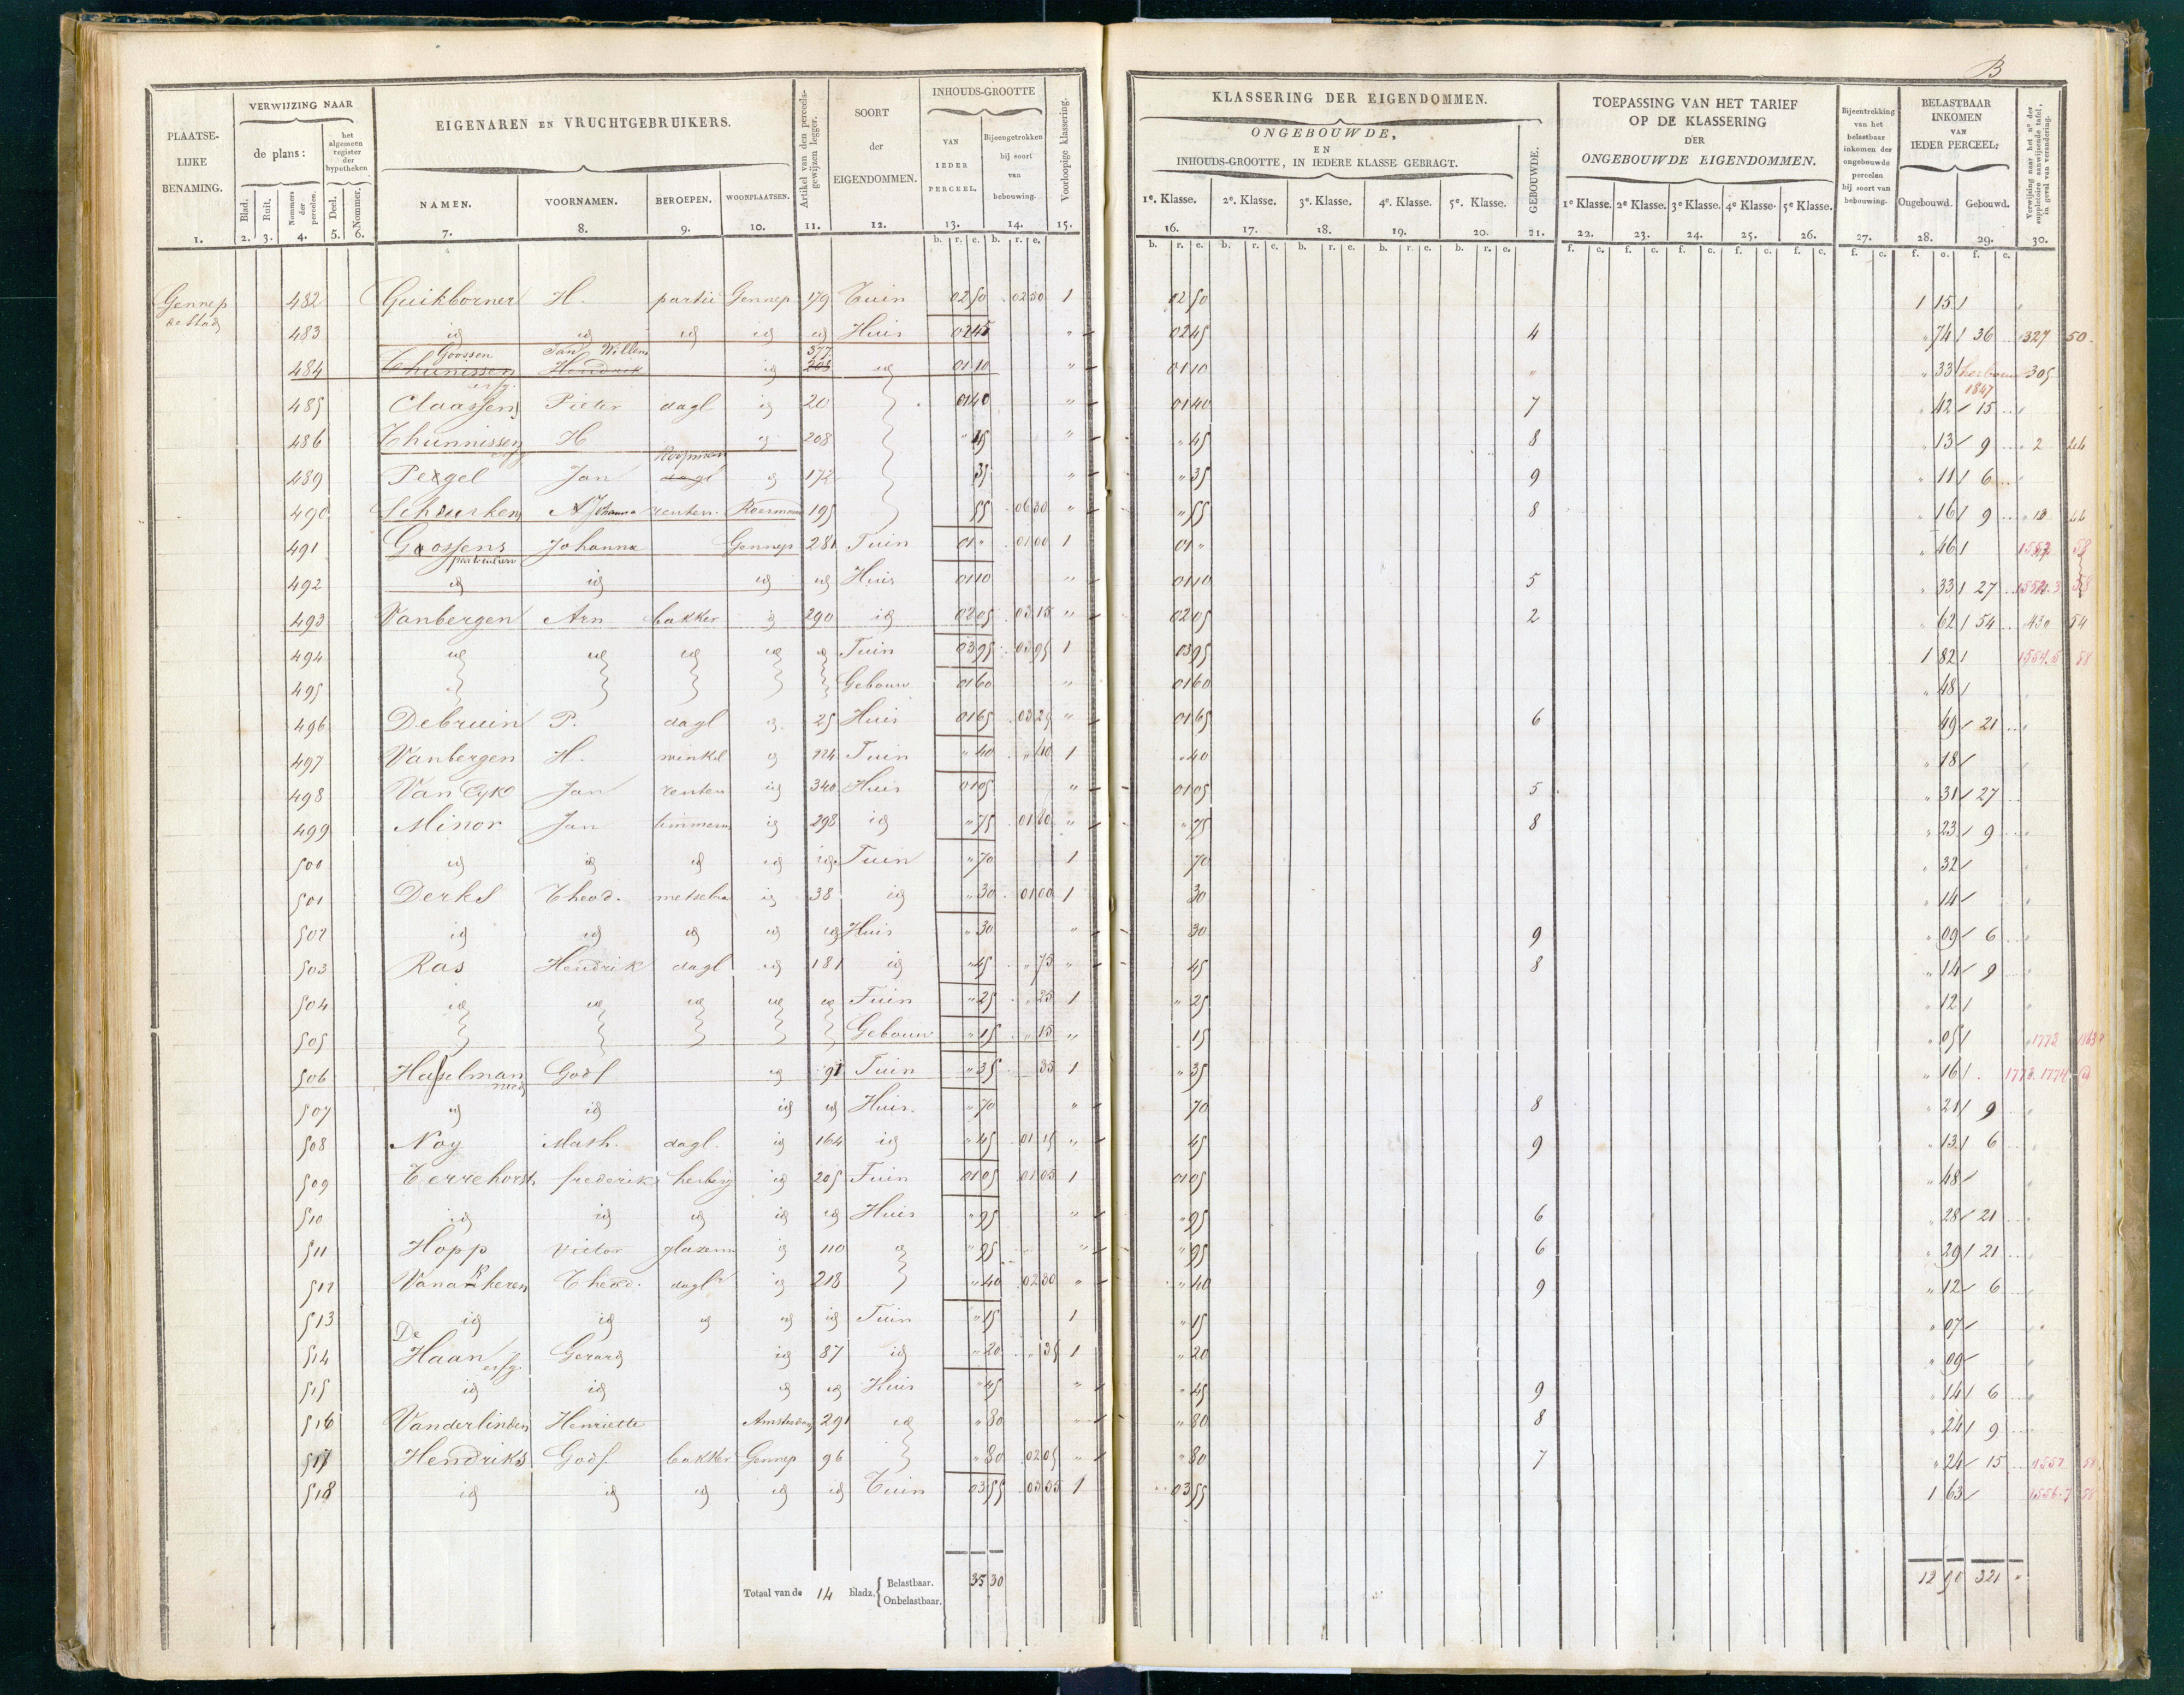 B
PLAATSELIJKE BENAMING. VERWIJZING NAAR de plans: het algemeen register der hypotheken EIGENAREN EN VRUCHTGEBRUIKERS. Artikel van den perceelsgewijzen legger. SOORT der EIGENDOMMEN. INHOUDS-GROOTTE VAN IEDER PERCEEL. Bijeengetrokken bij soort van bebouwing. Voorloopige klassering.
Blad. Ruit. Nommers der perceelen. Deel. Nommer. NAMEN. VOORNAMEN. BEROEPEN. WOONPLAATSEN.
1. 2. 3. 4. 5. 6. 7. 8. 9. 10. 11. 12. 13. 14. 15.
b. r. e. b. r. e.
KLASSERING DER EIGENDOMMEN. ONGEBOUWDE, EN INHOUDS-GROOTTE, IN IEDERE KLASSE GEBRAGT. GEBOUWDE. TOEPASSING VAN HET TARIEF OP DE KLASSERING DER ONGEBOUWDE EIGENDOMMEN. Bijeentrekking van het belastbaar inkomen der ongebouwde perceelen bij soort van bebouwing. BELASTBAAR INKOMEN VAN IEDER PERCEEL: Verwijzing naar het no der suppletoire aanwijzende tafel, in geval van verandering.
1e. Klasse. 2e. Klasse. 3e. Klasse. 4e. Klasse. 5e. Klasse. 1e Klasse. 2e Klasse. 3e Klasse. 4e Klasse. 5e Klasse. Ongebouwd. Gebouwd.
16. 17. 18. 19. 20. 21. 22. 23. 24. 25. 26. 27. 28. 29. 30.
b. r. e. b. r. e. b. r. e. b. r. e. b. r. e. f. c. f. c. f. c. f. c. f. c. f. c. f. c. f. c.
Gennep de Stad 482 Guikborner H. partic Gennep 179 Tuin 02 50 02 50 1 02 50 1 15
483 id id id id id Huis 02 45 " 02 45 4 " 74 36 327 50
484 Goossen Thunissen erfg. Jan Willem Hendrik id 377 208 id 01 10 " 01 10 " " 33 herbouw 1847 305
485 Claassens Pieter dagl id 20 01 40 " 01 40 7 " 42 15
486 Thunnissen erfg H id 208 " 45 " " 45 8 " 13 9 2
489 Pergel Jan Koopman dagl id 172 35 " " 35 9 " 11 6
490 Scheurkens A Johanna renten. Roermond 195 55 06 30 " " 55 8 " 16 9 13
491 Goossens particuliere Johanna Gennep 281 Tuin 01 " 01 00 1 01 " " 46 58
492 id id id id Huis 01 10 " 01 10 5 " 33 27 58
493 Vanbergen Arn bakker id 290 id 02 05 03 15 " 02 05 2 " 62 54 430 54
494 id id id id id Tuin 03 95 03 95 1 03 95 1 82 1554.5 58
495 Gebouw 01 60 " 01 60 " 48
496 Debruin P. dagl id 25 Huis 01 65 03 25 " 01 65 6 49 21
497 Vanbergen H. winkel id 224 Tuin " 40 " 40 1 " 40 " 18
498 Van Eyk Jan renten id 340 Huis 01 05 " 01 05 5 " 31 27
499 Minor Jan timmerm id 298 id " 75 01 80 " " 75 8 " 23 9
500 id id id id id Tuin " 70 1 70 " 32
501 Derks Theod. metselaa id 38 id " 30 01 00 1 30 " 14
502 id id id id id Huis " 30 " 30 9 " 09 6
503 Ras Hendrik dagl id 181 id " 45 " 75 " 45 8 " 14 9
504 id id id id id Tuin " 25 " 25 1 " 25 " 12
505 Gebouw " 15 " 15 " 15 " 05 1773
506 Haselman Godf id 91 Tuin " 35 35 1 " 35 " 16 1773.1774
507 id id id id Huis " 70 " 70 8 " 21 9
508 Noy Math. dagl. id 164 id " 45 01 15 " 45 9 " 13 6
509 Terrehorst frederik herberg id 205 Tuin 01 05 01 05 1 01 05 " 48
510 id id id id id Huis " 95 " " 95 6 " 28 21
511 Hopp victor glazenm id 110 id " 95 " " 95 6 " 29 21
512 Vanankeren Theod. dagl id 218 " 40 02 30 " " 40 9 " 12 6
513 id id id id id Tuin " 15 1 " 15 " 07
514 De Haan erfg Gerard id 87 id " 20 " 35 1 " 20 " 09
515 id id id id Huis " 45 " " 45 9 " 14 6
516 Vanderlinden Henriette Amsterdam 291 id " 80 " " 80 8 " 24 9
517 Hendriks Godf bakker Gennep 96 " 80 02 05 " " 80 7 " 24 15 1557 58
518 id id id id id Tuin 03 55 03 55 1 03 55 1 63 1556.7 58
Totaal van de 14 bladz. { Belastbaar. Onbelastbaar. 35 30 12 90 321 "